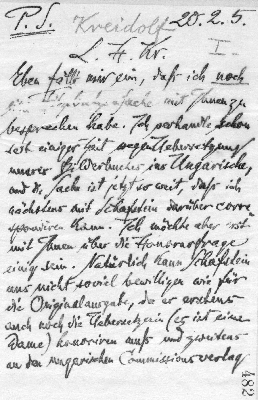 P.S. Kreidolf 20.2.5.
L. H. Kr. I.
Eben fällt mir ein, daß ich noch
eine                mit Ihnen zu
besprechen habe. Ich verhandle schon
seit einiger Zeit wegen Uebersetzung
unseres Bilderbuches ins Ungarische,
und die Sache ist jetzt so weit, daß ich
nächstens mit Schafstein darüber corre
spondieren kann. Ich möchte aber erst
mit Ihnen über die Honorarfrage
einig sein. Natürlich kann Schafstein
uns nicht soviel bewilligen wie für
die Originalausgabe, da er erstens
auch noch die Uebersetzerin (es ist eine
Dame) honoriren muß und zweitens
an den ungarischen Commissionsverlag
482